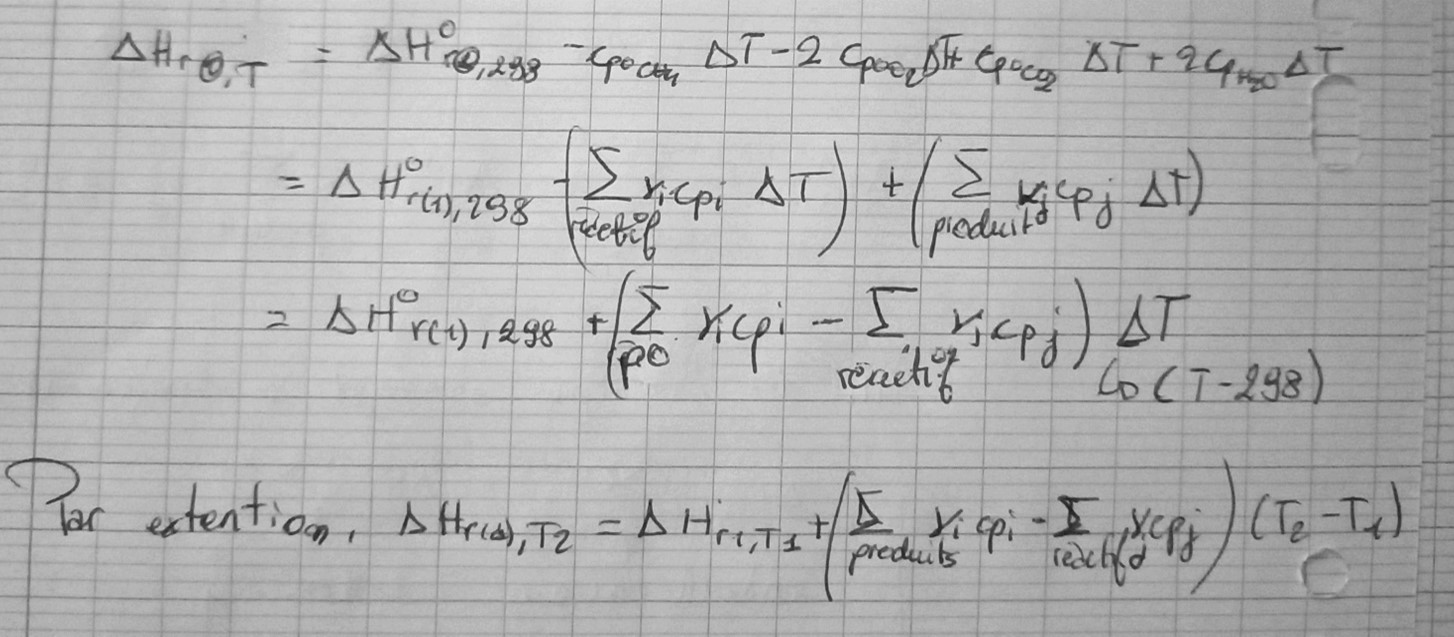 ΔHr①,T = ΔH°r①,298 - Cp○CH4 ΔT - 2 Cp○O2 ΔT + Cp○CO2 ΔT + 2 CpH2O ΔT
= ΔH°r(1),298 - (Σ réactif γi cpi ΔT) + (Σ produit γj cpj ΔT)
= ΔH°r(1),298 + (Σ po γi cpi - Σ réactif γj cpj) ΔT
↳ (T-298)
Par extention, ΔHr(1),T2 = ΔHr1,T1 + (Σ produits γi cpi - Σ réactif γj cpj) (T2 - T1)